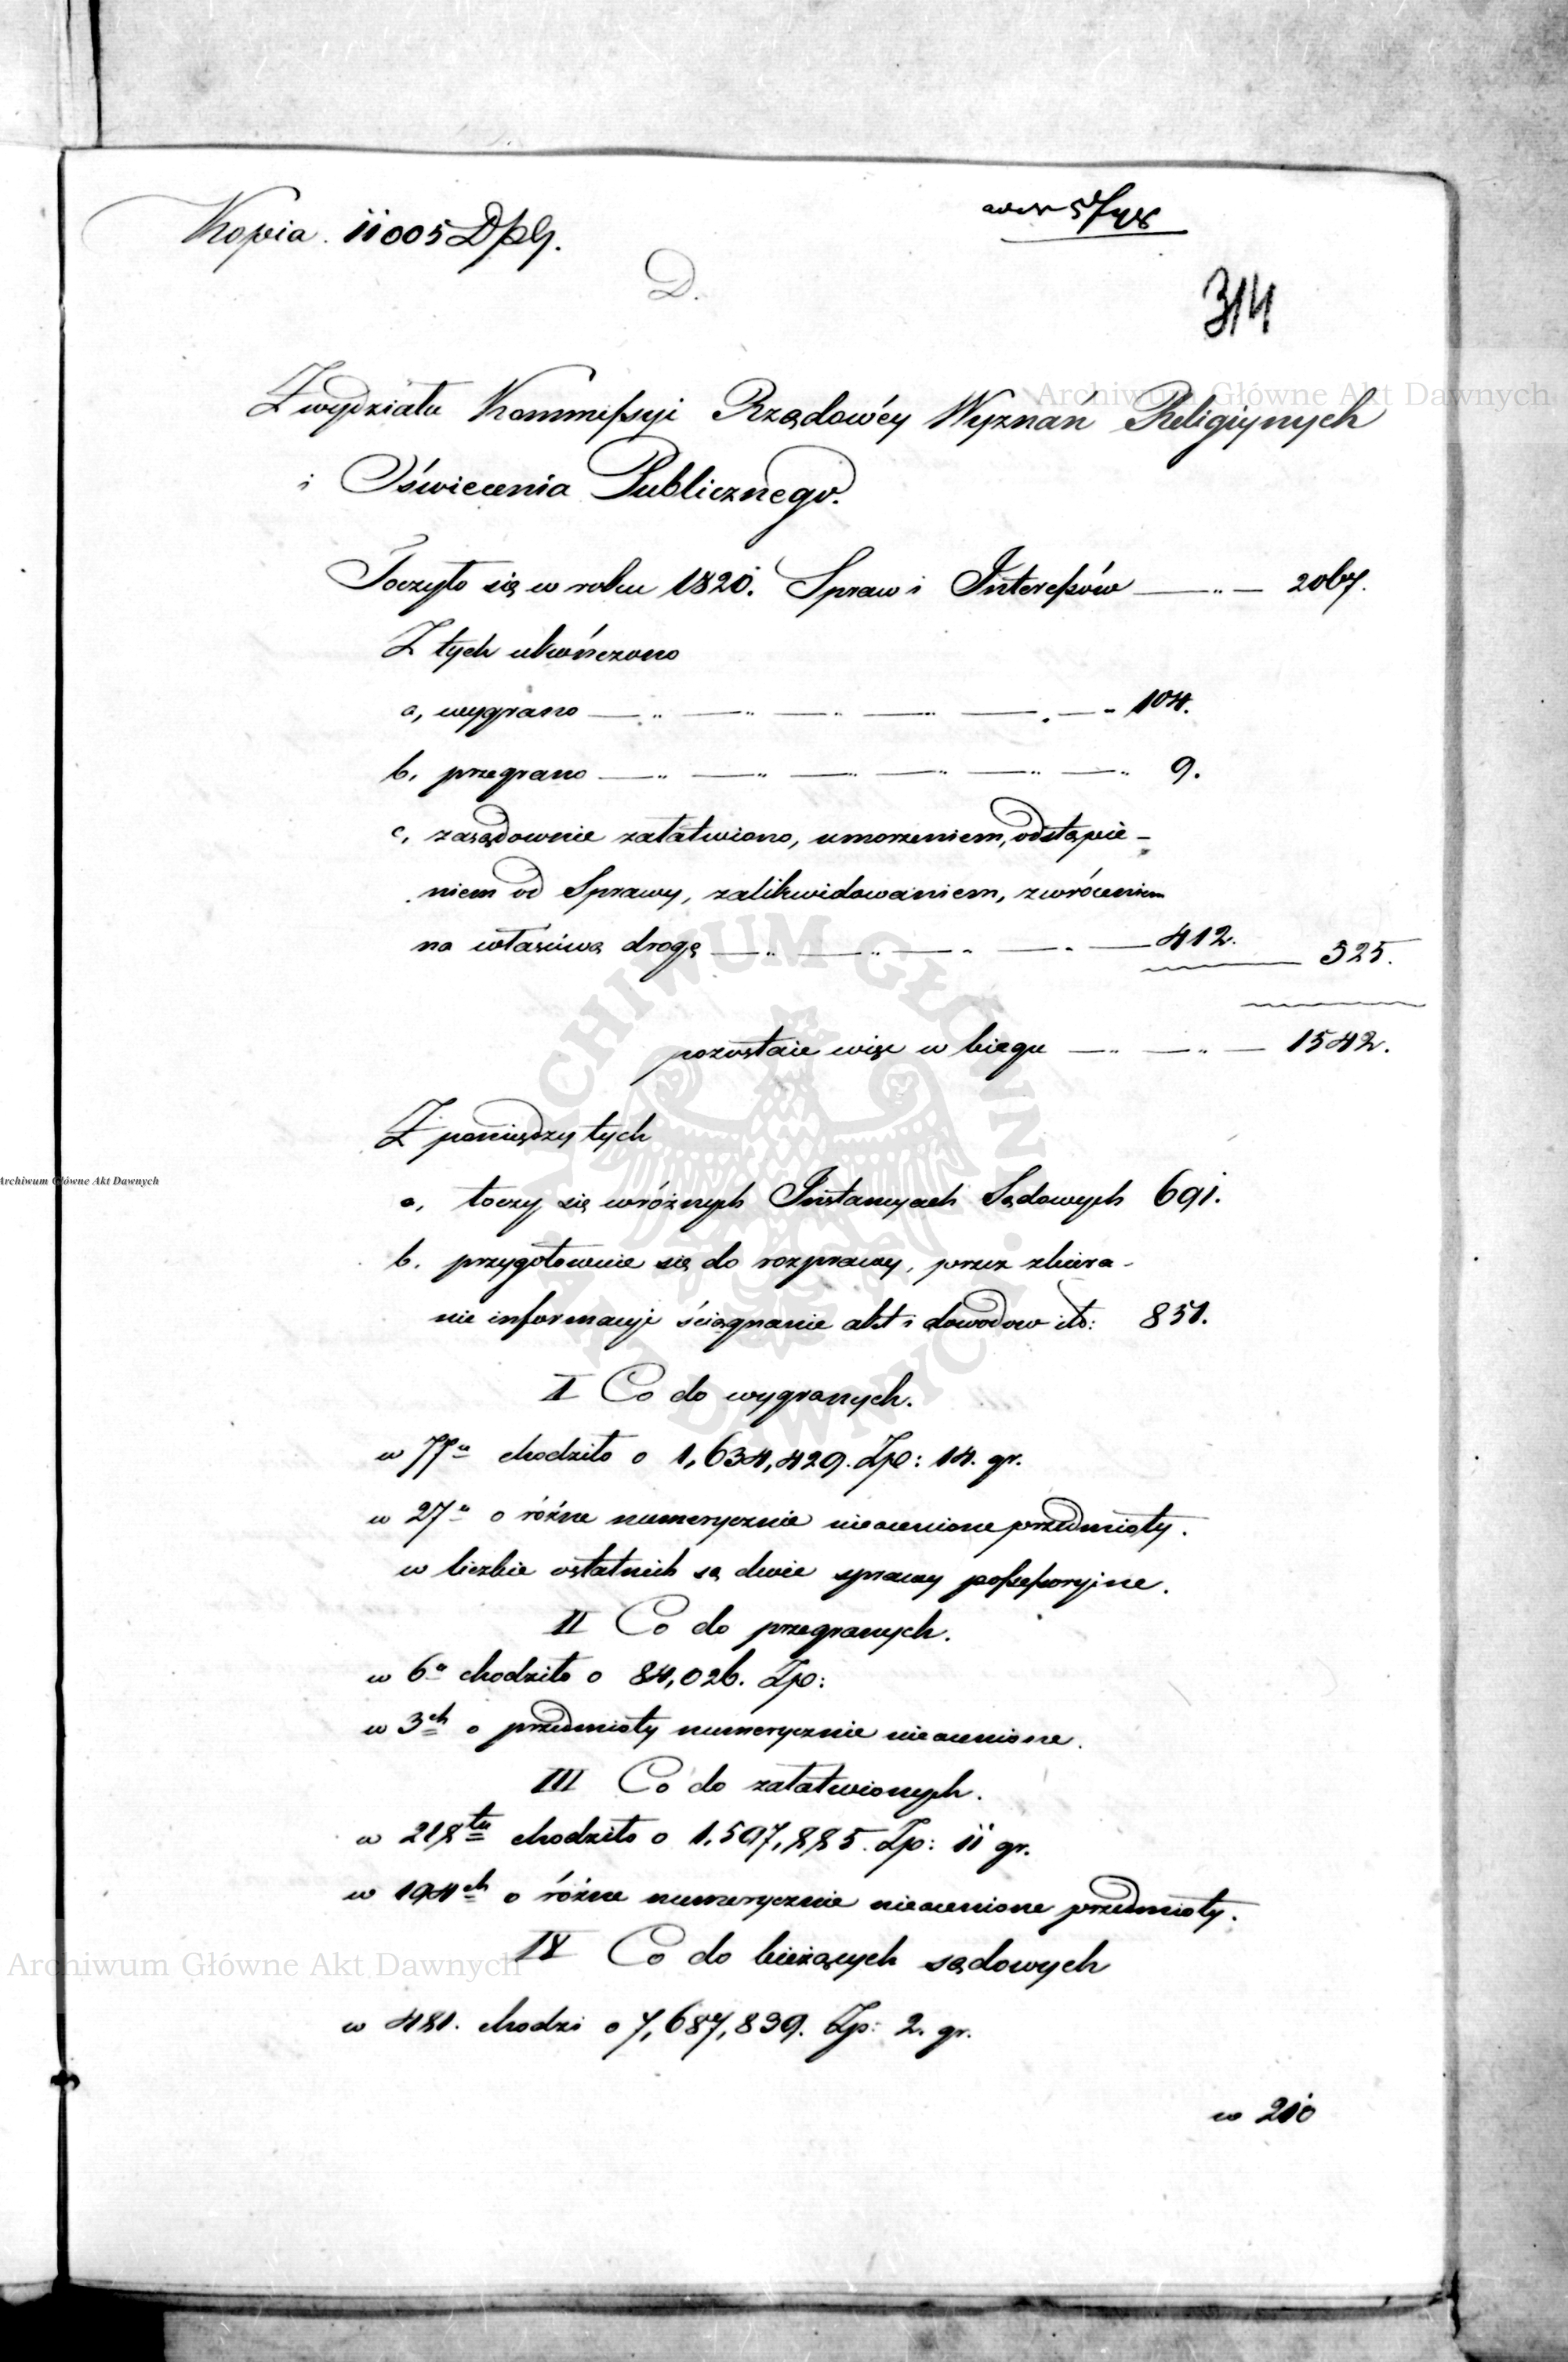 Kopia. 11005 D.p.G.
D.
314
Z wydziału Kommissyi Rządowéy Wyznań Religiynych
i Oświecenia Publicznego.
Toczyło się w roku 1820. Spraw i Interessów 2067.
Z tych ukończono
a, wygrano 104.
b, przegrano 9.
c, zasądownie załatwiono, umorzeniem, odstąpie-
niem od Sprawy, zalikwidowaniem, zwróceniem
na właściwą drogę 412. 525.
pozostaie więc w biegu 1542.
Z pomiędzy tych
a, toczy się w różnych Instancyach Sądowych 691.
b. przygotowuie się do rozprawy, przez zbiera-
nie informacyi ściąganie akt i dowodow itd: 851.
I Co do wygranych.
w 77u chodziło o 1,634,429. Zło: 14. gr.
w 27u o różne numerycznie nieocenione przedmioty.
w liczbie ostatnich są dwie sprawy possessoryjne.
II Co do przegranych.
w 6u chodziło o 84,026. Zło:
w 3ch o przedmioty numerycznie nieocenione.
III Co do załatwionych.
w 218tu chodziło o 1,597,885. Zło: 11 gr.
w 194ch o różne numerycznie nieocenione przedmioty.
IV Co do bieżących sądowych
w 481. chodzi o 7,687,839. Zło: 2. gr.
w 210
Archiwum Główne Akt Dawnych
Archiwum Główne Akt Dawnych
Archiwum Główne Akt Dawnych
ARCHIWUM GŁÓWNE AKT DAWNYCH